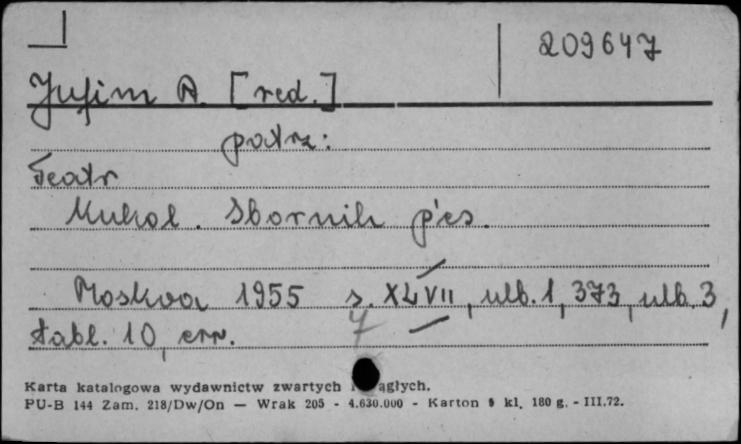 209647
Jufim A. [red.]
patrz:
Teatr
kukol. Sbornik p'es.
Moskva 1955 s. XLVII, nlb. 1, 373, nlb. 3,
tabl. 10, err.
4
Karta katalogowa wydawnictw zwartych ągłych.
PU-B 144 Zam. 218/Dw/On — Wrak 205 - 4.630.000 - Karton kl. 180 g. - III.72.